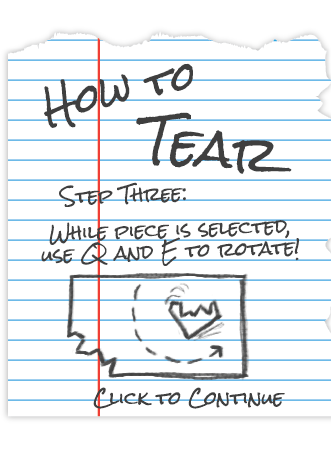 How to
Tear
Step Three:
While piece is selected,
use Q and E to rotate!
Click to Continue